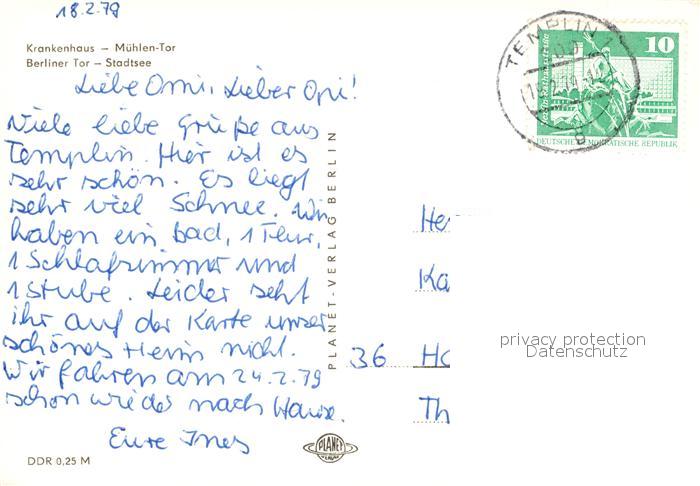 18.2.79
Krankenhaus – Mühlen-Tor
Berliner Tor – Stadtsee
Liebe Omi, Lieber Opi!
Viele liebe Grüße aus
Templin. Hier ist es
sehr schön. Es liegt
sehr viel Schnee. Wir
haben ein bad, 1 Flur,
1 Schlafzimmer und
1 Stube. Leider seht
ihr auf der Karte unser
schönes Heim nicht.
Wir fahren am 24.2.79
schon wieder nach Hause.
Eure Ines
DDR 0,25 M
PLANET-VERLAG BERLIN
PLANET
VERLAG
TEMPLIN 1
10
DEUTSCHE DEMOKRATISCHE REPUBLIK
He
Ka
36 Ho
Th
privacy protection
Datenschutz